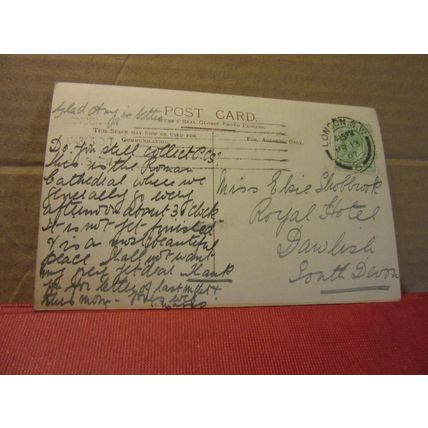 Glad Amy is better
POST CARD.
THIS SPACE MAY NOW BE USED FOR
COMMUNICATION.
FOR ADDRESS ONLY.
LONDON. S.W.
Do you still collect P.Cs?
This is the Roman
Cathedral where we
generally go every
afternoon about 3 o'clock
it is not yet finished
& is a most beautiful
place. Shall not want
my grey yet dear. Thank
you for letter of last night &
this morn.
Miss Elsie Shobbrook
Royal Hotel
Dawlish
South Devon